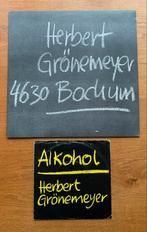 Herbert
Grönemeyer
4630 Bochum
Alkohol
Herbert
Grönemeyer